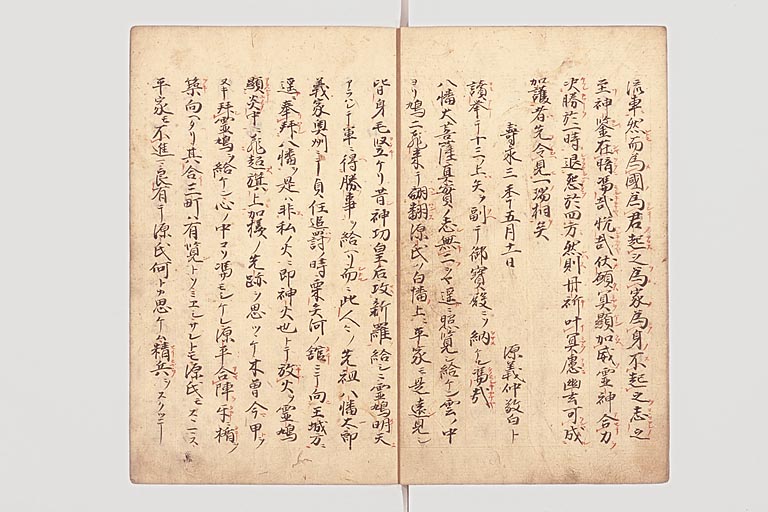 流車然而為國為君起之為家為身不起之志之
至神鑒在暗憑哉悦哉伏願冥顕加威霊神合力
決勝於一時退怨於四方然則丹祈叶冥慮幽玄可成
加護者先令見一瑞相矣
壽永三年五月十一日 源義仲敬白ト
読挙テ十三ノ上矢ヲ副テ御寶殿ニソ納ケル憑哉
八幡大菩薩真實ノ志無二ヲヤ遥ニ照覧シ給ケン雲ノ中
ヨリ鳩二飛来テ翩翻源氏ノ白幡上ニ平家ニ是遠見シ
皆身毛竪ケリ昔神功皇后攻新羅給シニ霊鳩明天
アラハシテ軍ニ得勝事ヲ給ヘリ而ニ此人々ノ先祖八幡太郎
義家奥州ニシテ貞任追罸時栗矢河ノ舘ニシテ向王城方ニ
遥ニ奉拜八幡ヲ是ハ非私ノ火ニ即神火也トテ放火ヲ霊鳩
顕炎中ニ飛超旗上加様ノ先跡ヲ思ツヽケ木曽今甲ヲ
又キ拜霊鳩ヲ給ケン心ノ中コソ憑モシケレ源平合陣ヲ楯ヲ
築向ヘタリ其合三町ハ有覧トソミエシサレトモ源氏モスヽミス
平家モ不進ニ良有テ源氏何トカ思ケム精兵ヲスクテ